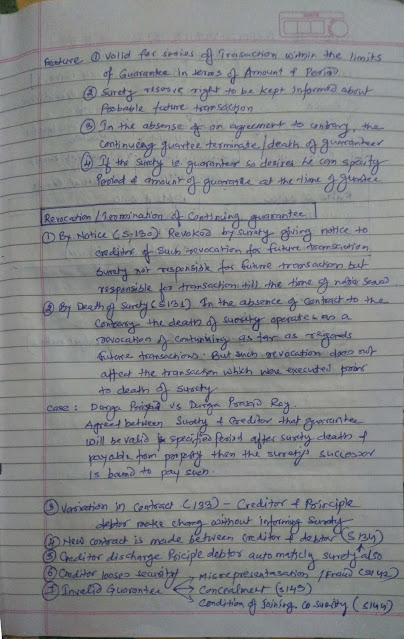 Feature ① Valid for series of Transaction within the limits
of Guarantee in terms of Amount & Period
② Surety reserve right to be kept informed about
Probable future transaction
③ In the absense of an agreement to contrary, the
Continuing guartee terminate/death of guaranteer
④ If the surety i.e guaranteer so desires he can specify
Period & amount of guarantee at the time of
Revocation / Termination of Continuing guarantee
① By Notice (S-130) Revoked by surety giving notice to
creditor of such revocation for future transaction
Surety not responsible for future transaction but
responsible for transaction till the time of notice
② By Death of Surety (S131) In the absence of contract to the
Contrary the death of surety operates as a
revocation of as far as regards
future transactions. But such revocation does not
affect the transaction which were executed prior
to death of surety
Case : Durga vs Durga Prasad Roy.
Agreed between Surety & Creditor that guarantee
will be valid specified period after surety death &
payable from property then the surety's successor
is bound to pay such.
③ Variation in Contract (133) - Creditor & Principle
debtor make chang without informing Surety
④ New contract is made between Creditor & debtor (S134)
⑤ Creditor discharge debtor surety also
⑥ Creditor looses security
⑦ Invalid Guarantee
Misrepresentation / Fraud (S142)
Concealment (S143)
Condition of Joining Co surety (S144)